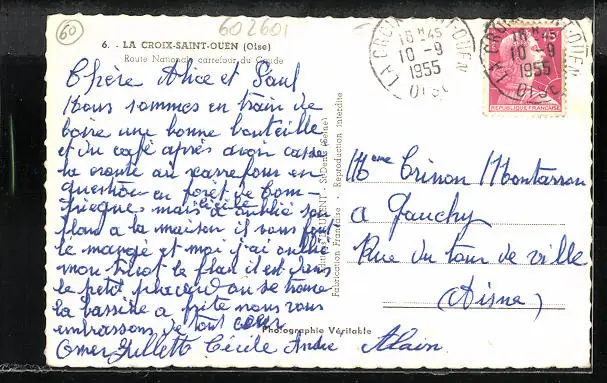 60
602601
6. - LA CROIX-SAINT-OUEN (Oise)
Route Nationale carrefour du Coude
Chère Alice et Paul
Nous sommes en train de
boire une bonne bouteille
et du café après avoir cassé
la croute au carrefour en
question en foret de Com-
piegne mais Cécile a oublié son
flan a la maison il vous faut
le mangé et moi j'ai oublié
mon tricot le flan il est dans
le petit placard ou se trouve
la bassine a frite nous vous
embrassons de tout cœur
Omer Gillette Cécile André Alain
Photographie Véritable
St-Denis (Seine)
Fabrication Française - Reproduction interdite
LA CROIX-ST-OUEN
16 H 45
10 - 9
1955
OISE
LA CROIX-ST-OUEN
16 H 45
10 - 9
1955
OISE
REPUBLIQUE FRANÇAISE
Mme Crinon Montarron
a Gauchy
Rue du tour de ville
(Aisne)